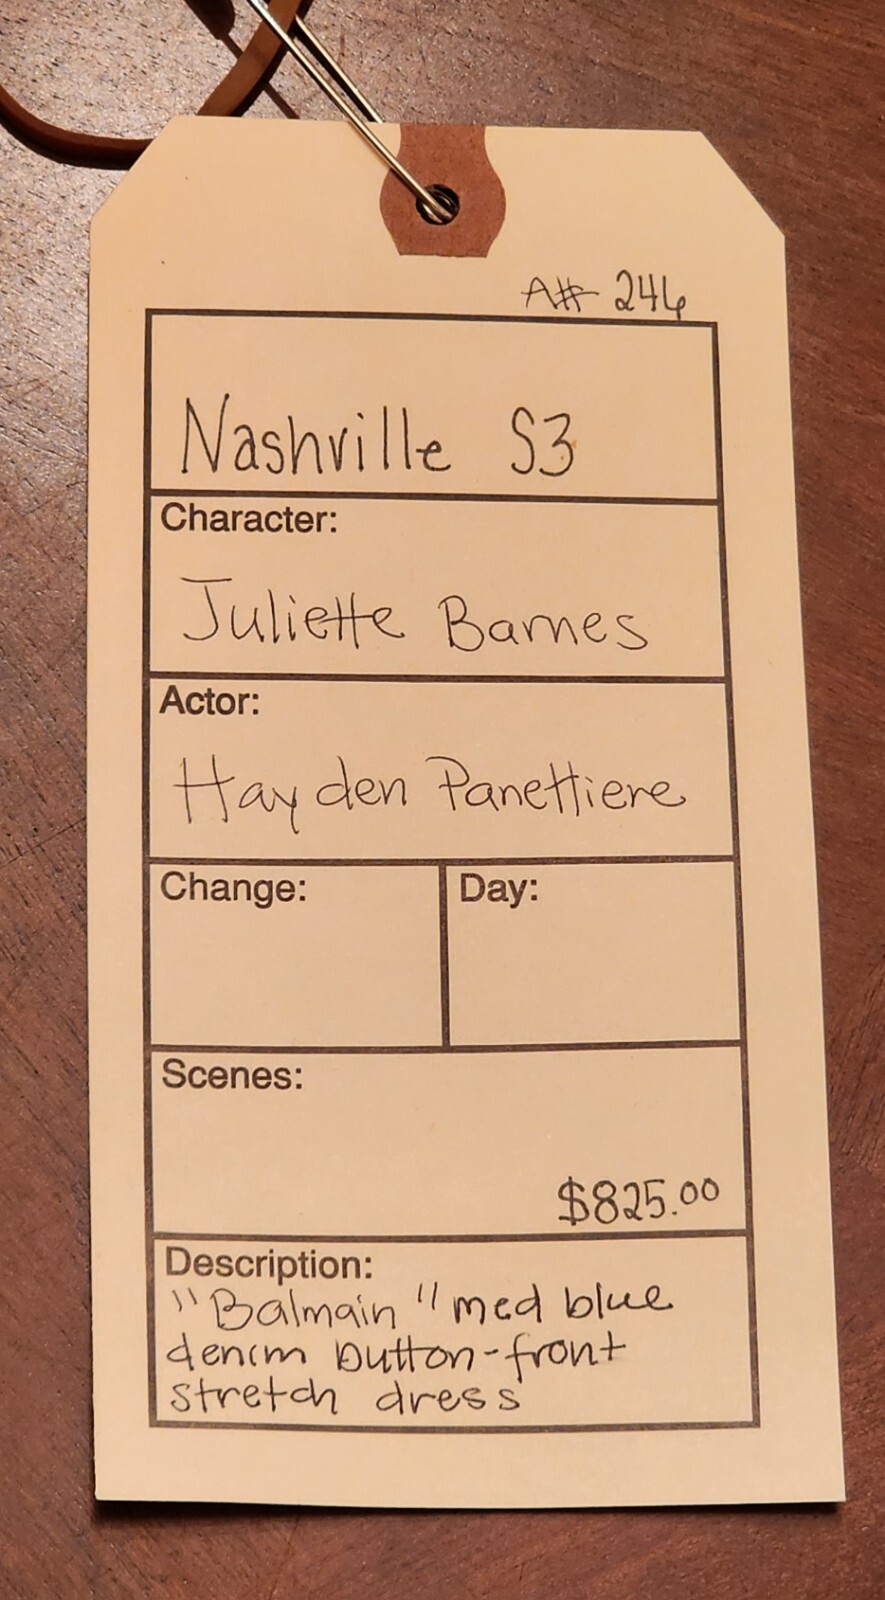 A# 246
Nashville S3
Character:
Juliette Barnes
Actor:
Hayden Panettiere
Change:
Day:
Scenes:
$825.00
Description:
"Balmain" med blue
denim button-front
stretch dress